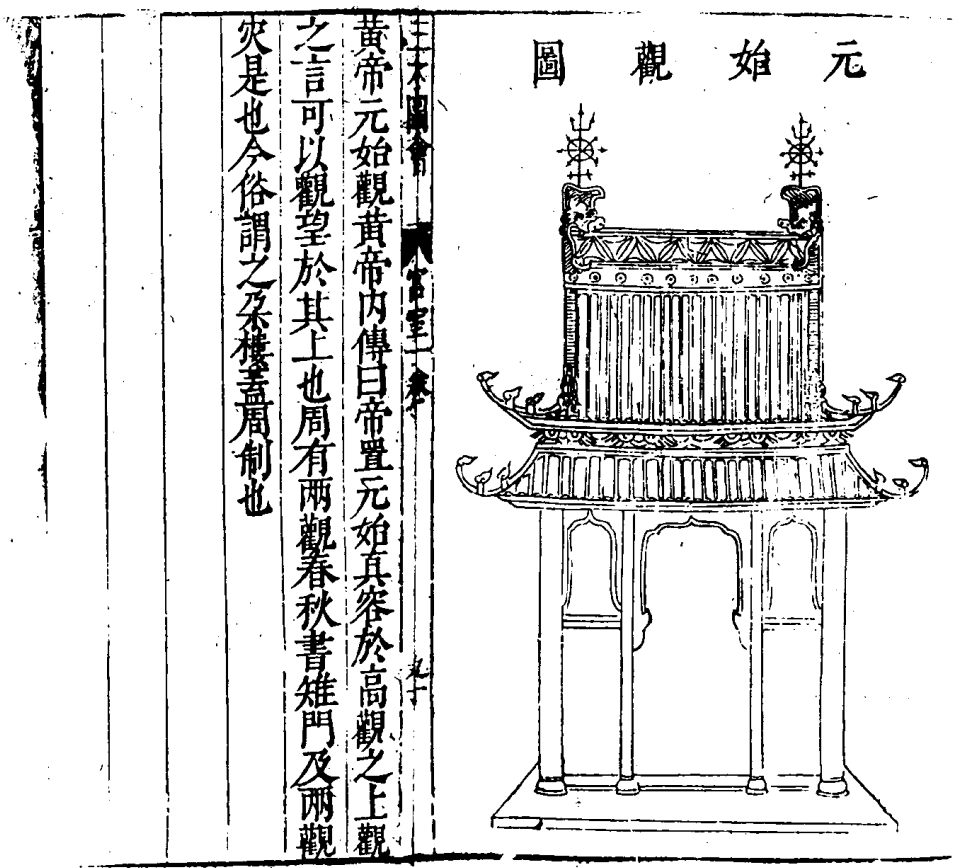 元始觀圖
三才圖會 宮室一卷
黃帝元始觀黃帝内傳曰帝置元始真容於高觀之上觀
之言可以觀望於其上也周有两觀春秋書雉門及兩觀
灾是也今俗謂之朶樓盖周制也